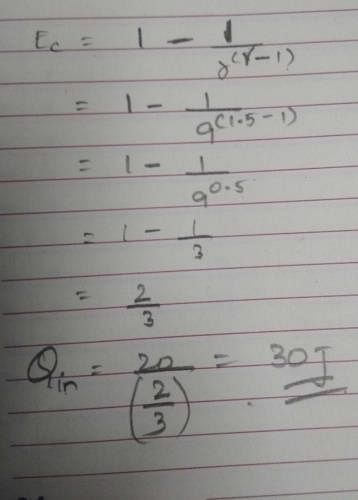 Ec = 1 - 1/r^(γ-1)
= 1 - 1/9^(1.5-1)
= 1 - 1/9^0.5
= 1 - 1/3
= 2/3
Qin = 20/(2/3) = 30J